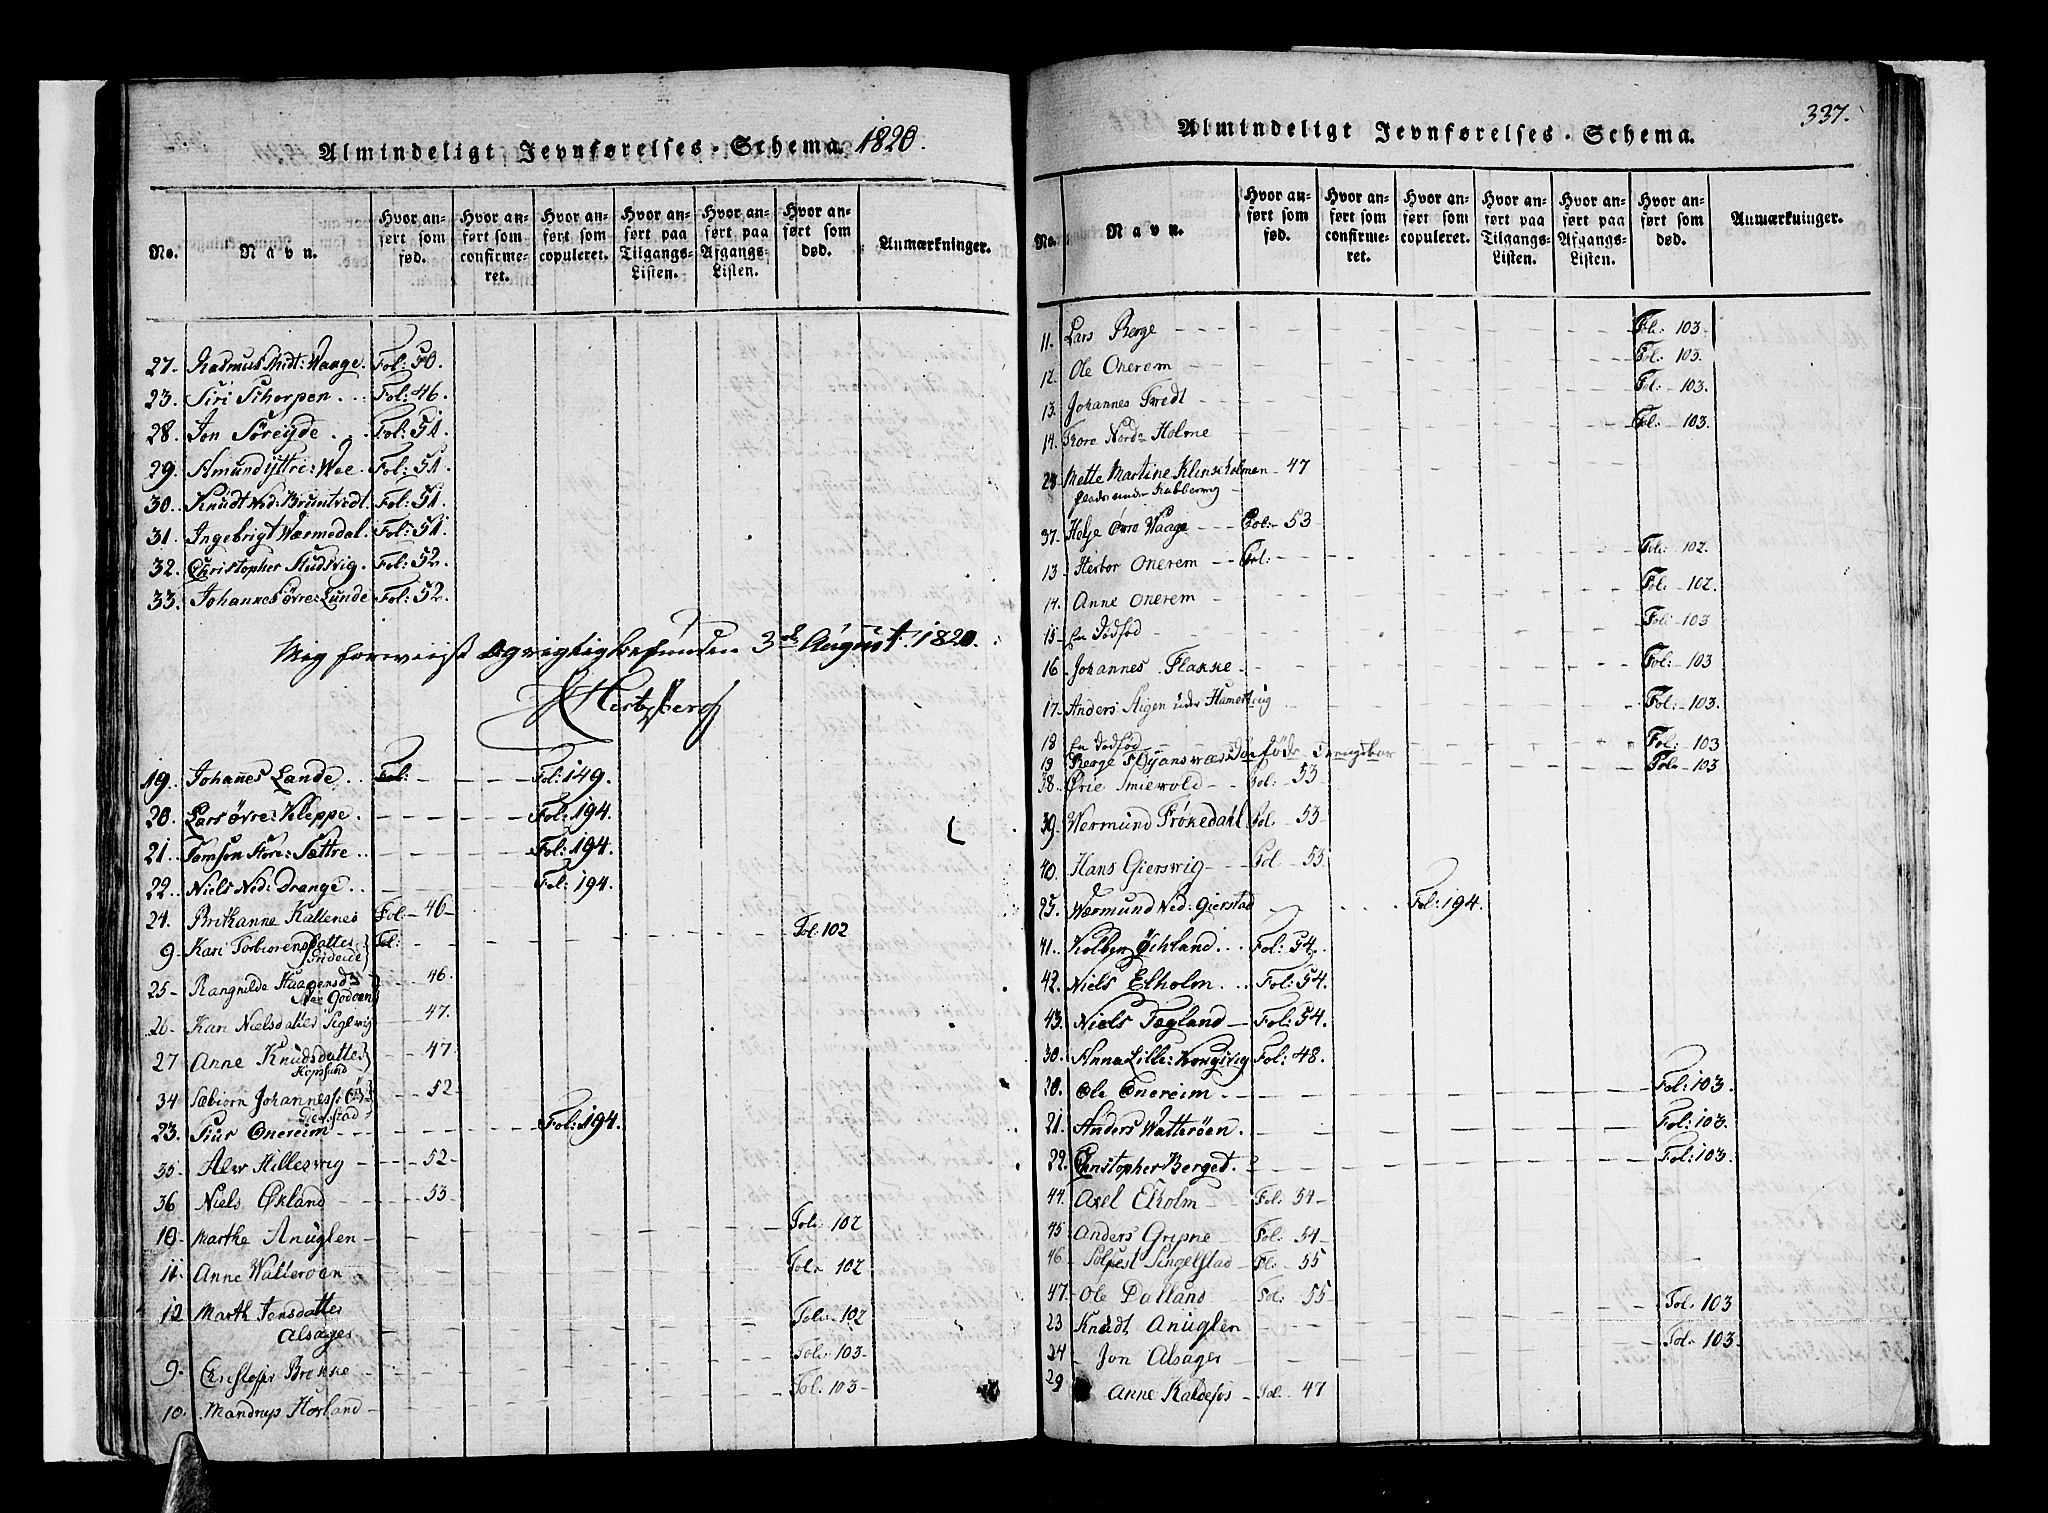 Almindeligt Jevnførelses-Schema. 1820.
No. Navn. Hvor anført som fød. Hvor anført som confirmeret. Hvor anført som copuleret. Hvor anført paa Tilgangs-Listen. Hvor anført paa Afgangs-Listen. Hvor anført som død. Anmærkninger.
27. Rasmus Midt: Waage. Fol: 50.
23. Siri Schorpen Fol: 46.
28. Jon Söreyde Fol: 51.
29. Amund Yttre: Wee Fol: 51.
30. Knudt Ned: Bruntvedt Fol: 51.
31. Ingebrigt Wærmedal Fol: 51.
32. Christopher Hudsvig. Fol: 52.
33. Johannes Övre: Lunde Fol: 52.
Mig foreviist og rigtig befunden 3d August 1820.
Hertzberg
19. Johanes Lande Fol: Fol: 149.
20. Lars Övre: Kleppe Fol: 194.
21. Tomson Store: Sættre Fol: 194.
22. Niels Ned: Drange Fol: 194.
24. Brithanne Kaltenes Fol 46
9. Kari Torbiorensdatter Fol: Fol: 102
25 Rangnilde Haagensd: 46.
Godoen
26 Kari Nielsdatter Siglevig 47.
27 Anne Knudsdatter 47
Hopsund
34 Sæbiorn Johanness: 52
Gierstad
23. Siur Onereim Fol: 194.
35 Alv Hillesvig 52
36 Niels Økland 53
10 Marthe Anuglen Fol: 102
11. Anne Watteröen Fol: 102
12 Marth Jensdatter Fol: 102
Alsager
9. Christoffer Brekke Fol: 103
10. Mandrup Horland Fol: 103
337.
Almindeligt Jevnførelses-Schema.
No. Navn. Hvor anført som fød. Hvor anført som confirmeret. Hvor anført som copuleret. Hvor anført paa Tilgangs-Listen. Hvor anført paa Afgangs-Listen. Hvor anført som død. Anmærkninger.
11. Lars Berge Fol: 103
12. Ole Onerem Fol: 103.
13. Johannes Tvedt Fl: 103.
14. Tore Nord Holme Fol: 103.
28 Mette Martine Klinscholmen 47
37. Helje Övre Waage Fol: 53
13 Herbor Onerem Fol: Fol: 102.
14. Anne Onerem Fol: 102
15 En Dödfød Fol: 103
16 Johannes Flakke Fol: 103
17. Anders Stigen under Hamerhoug Fol: 103.
18 En Dødfød Fol: 103
19 Fol: 103
38. Brie Smievold Fol: 53
39. Wermund Frökedahl Fol 53
40 Hans Gierswig Fol 53
25. Wærmund Ned: Gierstad Fol: 194.
41. Kolben Öchland Fol: 54.
42. Niels Elholm Fol: 54.
43. Niels Fagland Fol: 54.
30. Anna Lille: Kongsvig Fol: 48.
20. Ole Onereim Fol: 103.
21. Anders Watteröen Fol: 103.
22. Christopher Berget. Fol: 103.
44. Axel Elholm Fol: 54
45 Anders Gripne Fol: 54
46 Solfest Singelstad Fl: 55
47. Ole Dalland Fol: 55
23 Knudt Anuglen Fol: 103
24 Jon Alsager Fol: 103
29 Anne Kaldefos Fol: 47